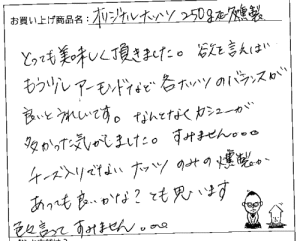 お買い上げ商品名：オリジナルナッツ250g在燻製
とっても美味しく頂きました。欲を言えば
もう少しアーモンドなど各ナッツのバランスが
良いとうれしいです。なんとなくカシューが
多かった気がしました。すみません。。。
チーズ入りでないナッツのみの燻製が
あっても良いかな？とも思います
色々言ってすみません。。。